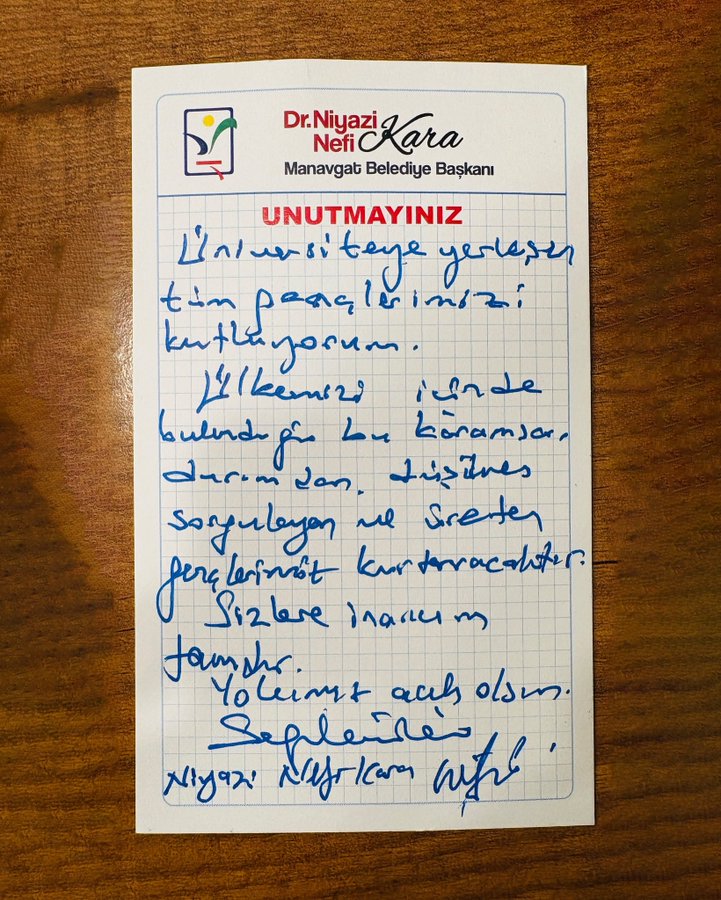 Dr. Niyazi
Nefi Kara
Manavgat Belediye Başkanı
UNUTMAYINIZ
Üniversiteye yerleşen
tüm gençlerimizi
kutluyorum.
Ülkemizi içinde
bulunduğu bu karamsar
durumdan, düşünen
sorgulayan ve üreten
gençlerimiz kurtaracaktır.
Sizlere inancım
tamdır.
Yolunuz açık olsun.
Niyazi Nefi Kara